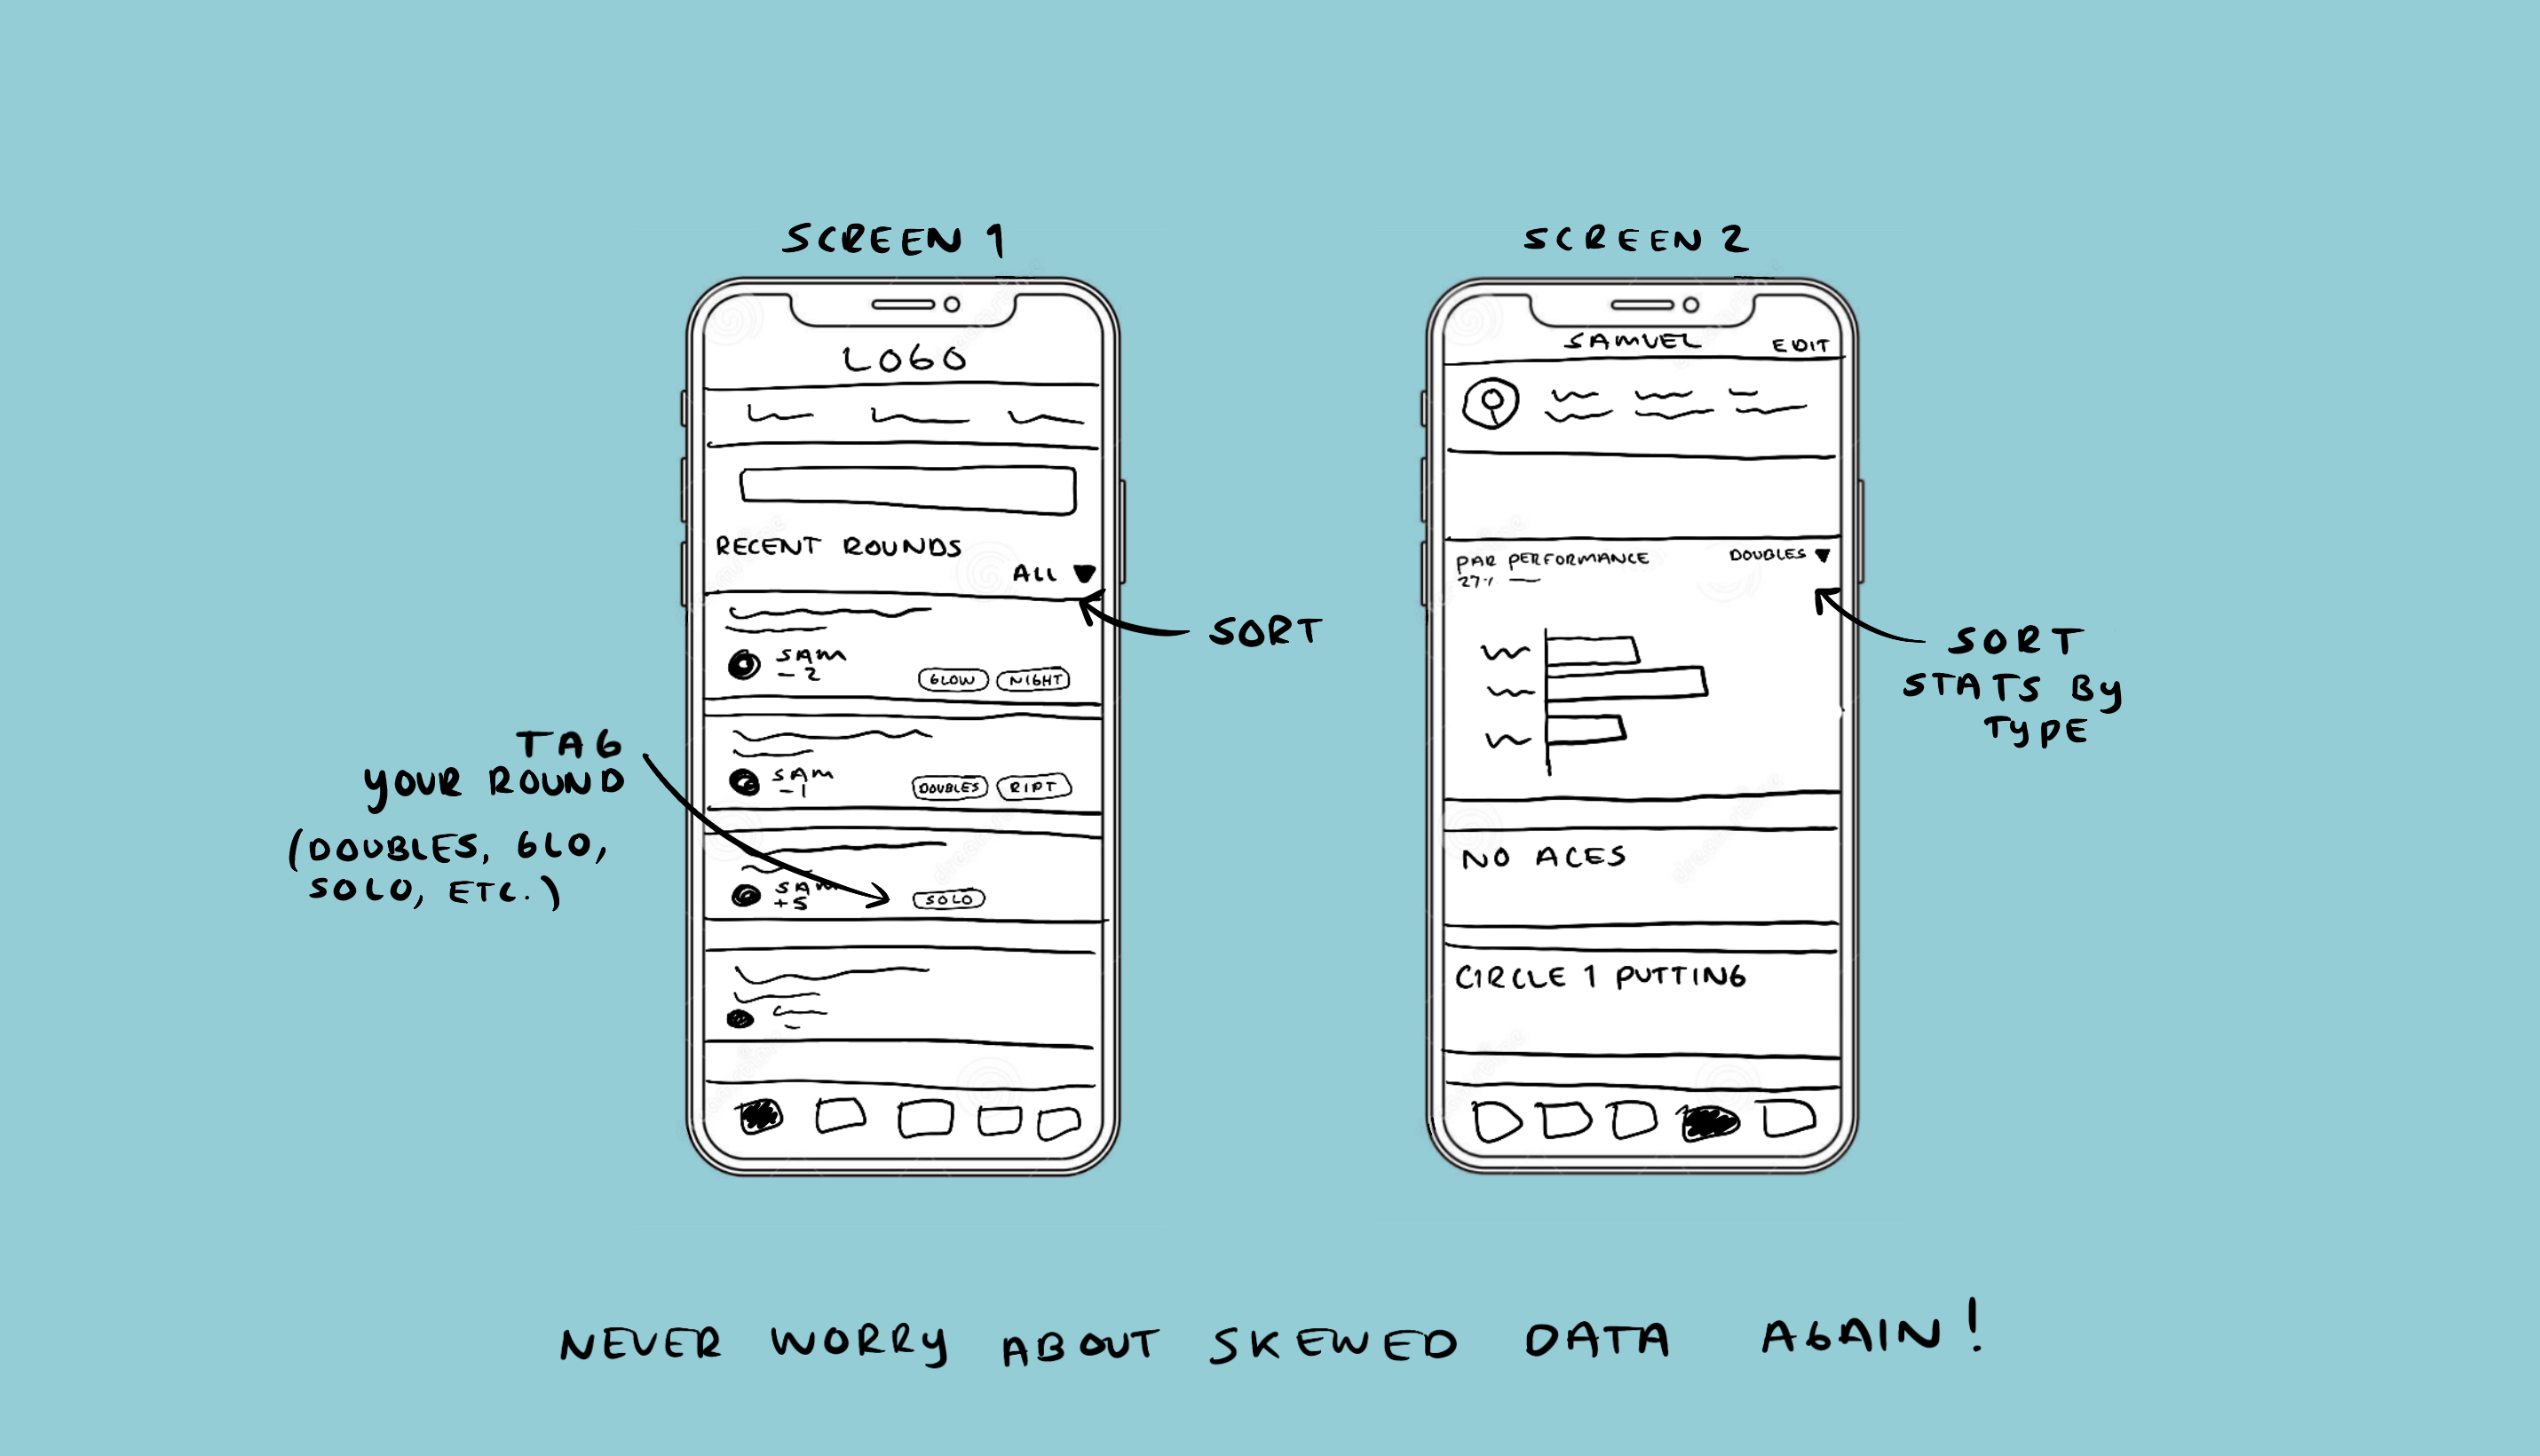 SCREEN 1
LOGO
RECENT ROUNDS
ALL
SAM
-2
GLOW NIGHT
SAM
-1
DOUBLES RIPT
SAM
+5
SOLO
SORT
TAG
YOUR ROUND
(DOUBLES, GLO,
SOLO, ETC.)
SCREEN 2
SAMUEL EDIT
PAR PERFORMANCE DOUBLES
27%
NO ACES
CIRCLE 1 PUTTING
SORT
STATS BY
TYPE
NEVER WORRY ABOUT SKEWED DATA AGAIN!